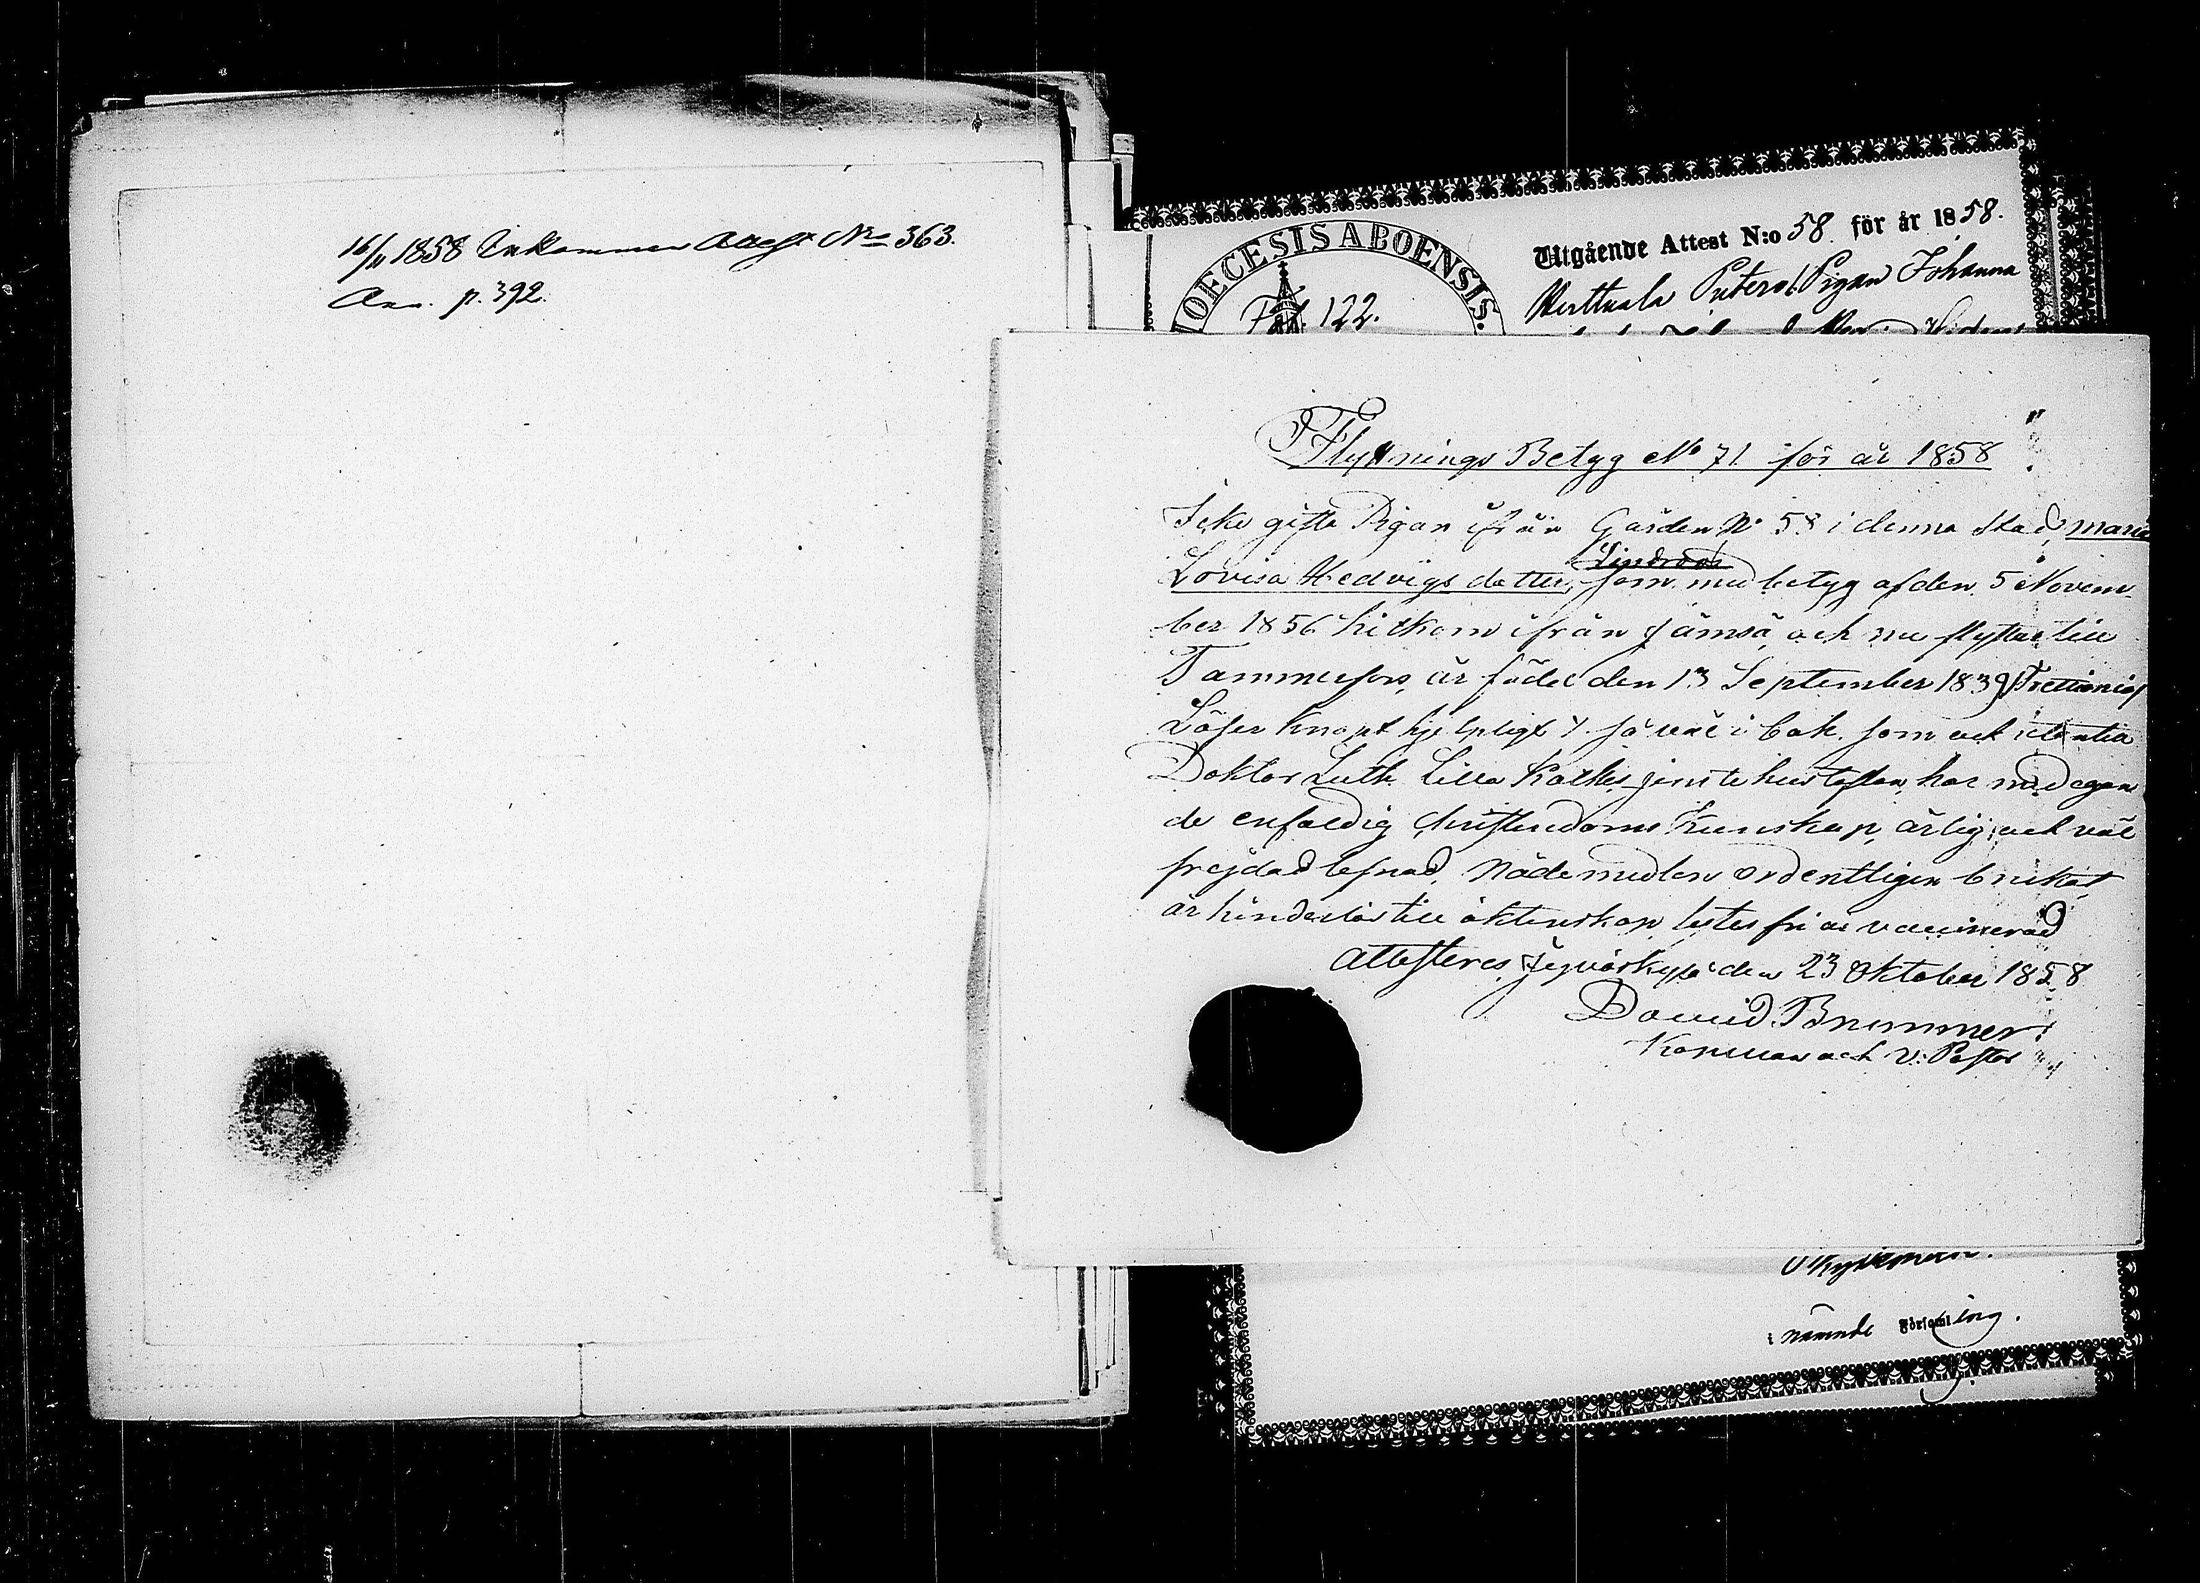 16/11 1858 Inkommen Attest No 363.
Ann. p. 392.
DIOECESIS ABOENSIS.
Fol. 122.
Utgående Attest N:o 58 för år 1858.
Pigan Johanna
Flyttnings Betyg No 71 för år 1858
Icke gifta Pigan ifrån Gården No 58 i denna stad, Maria
Lindroos
Lovisa Hedvigs dotter, som med betyg af den 5 Novem-
ber 1856 hitkom ifrån Jämsä, och nu flyttar till
Tammerfors, är född den 13 September 1839 (Trettionio)
Läser knapt hjelpligt såväl i bok som och utantill
Doktor Luth. Lilla Kathes jemte hustaflan, har nödagan
de enfaldig Christendoms Kunskap, ärlig och väl
frejdad lefnad, Nådemedlen ordentligen brukat
är hinderlös till äktenskap, vaccinerad
Attesteres, Jyväskylä den 23 Oktober 1858
David Brummer
och V: Pastor
i nämnde Församling.